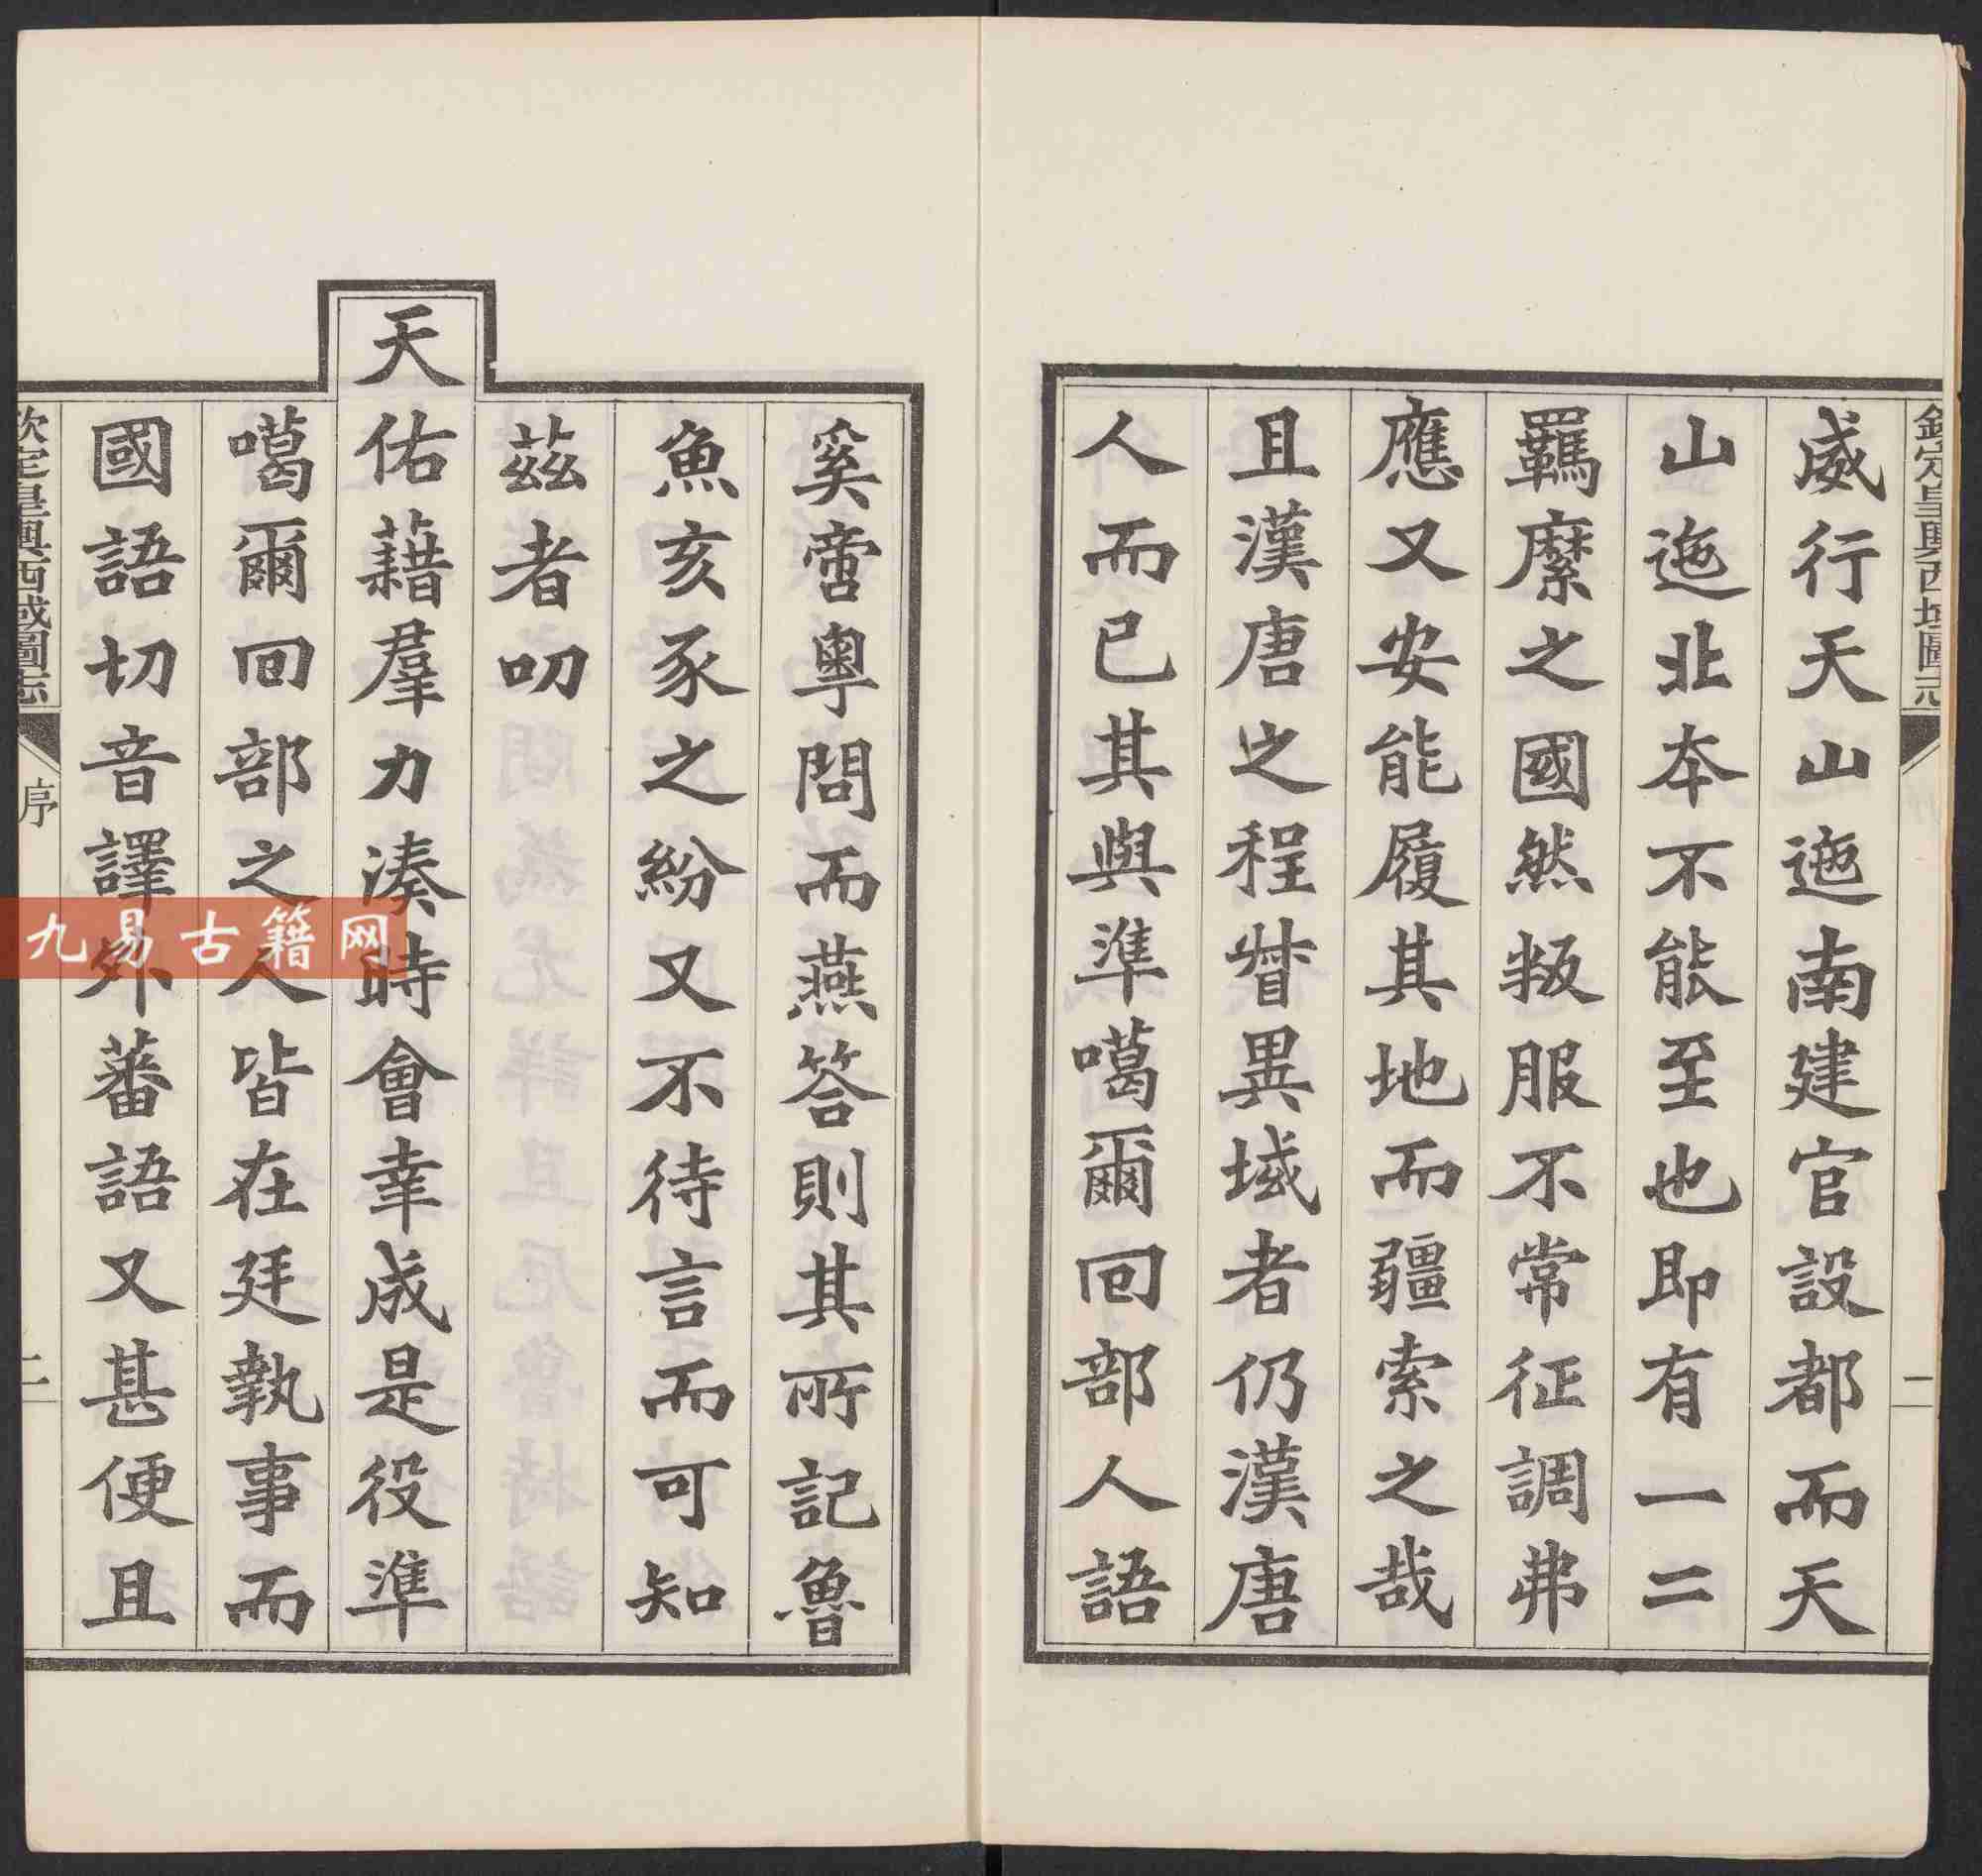 欽定皇輿西域圖志
二
威行天山迤南建官設都而天
山迤北本不能至也即有一二
羈縻之國然叛服不常征調弗
應又安能履其地而疆索之哉
且漢唐之程督異域者仍漢唐
人而已其與準噶爾回部人語
奚啻粵問而燕答則其所記魯
魚亥豕之紛又不待言而可知
茲者叨
天佑藉羣力湊時會幸成是役準
噶爾回部之人皆在廷執事而
國語切音譯外蕃語又甚便且
欽定皇輿西域圖志
序
二
九易古籍网